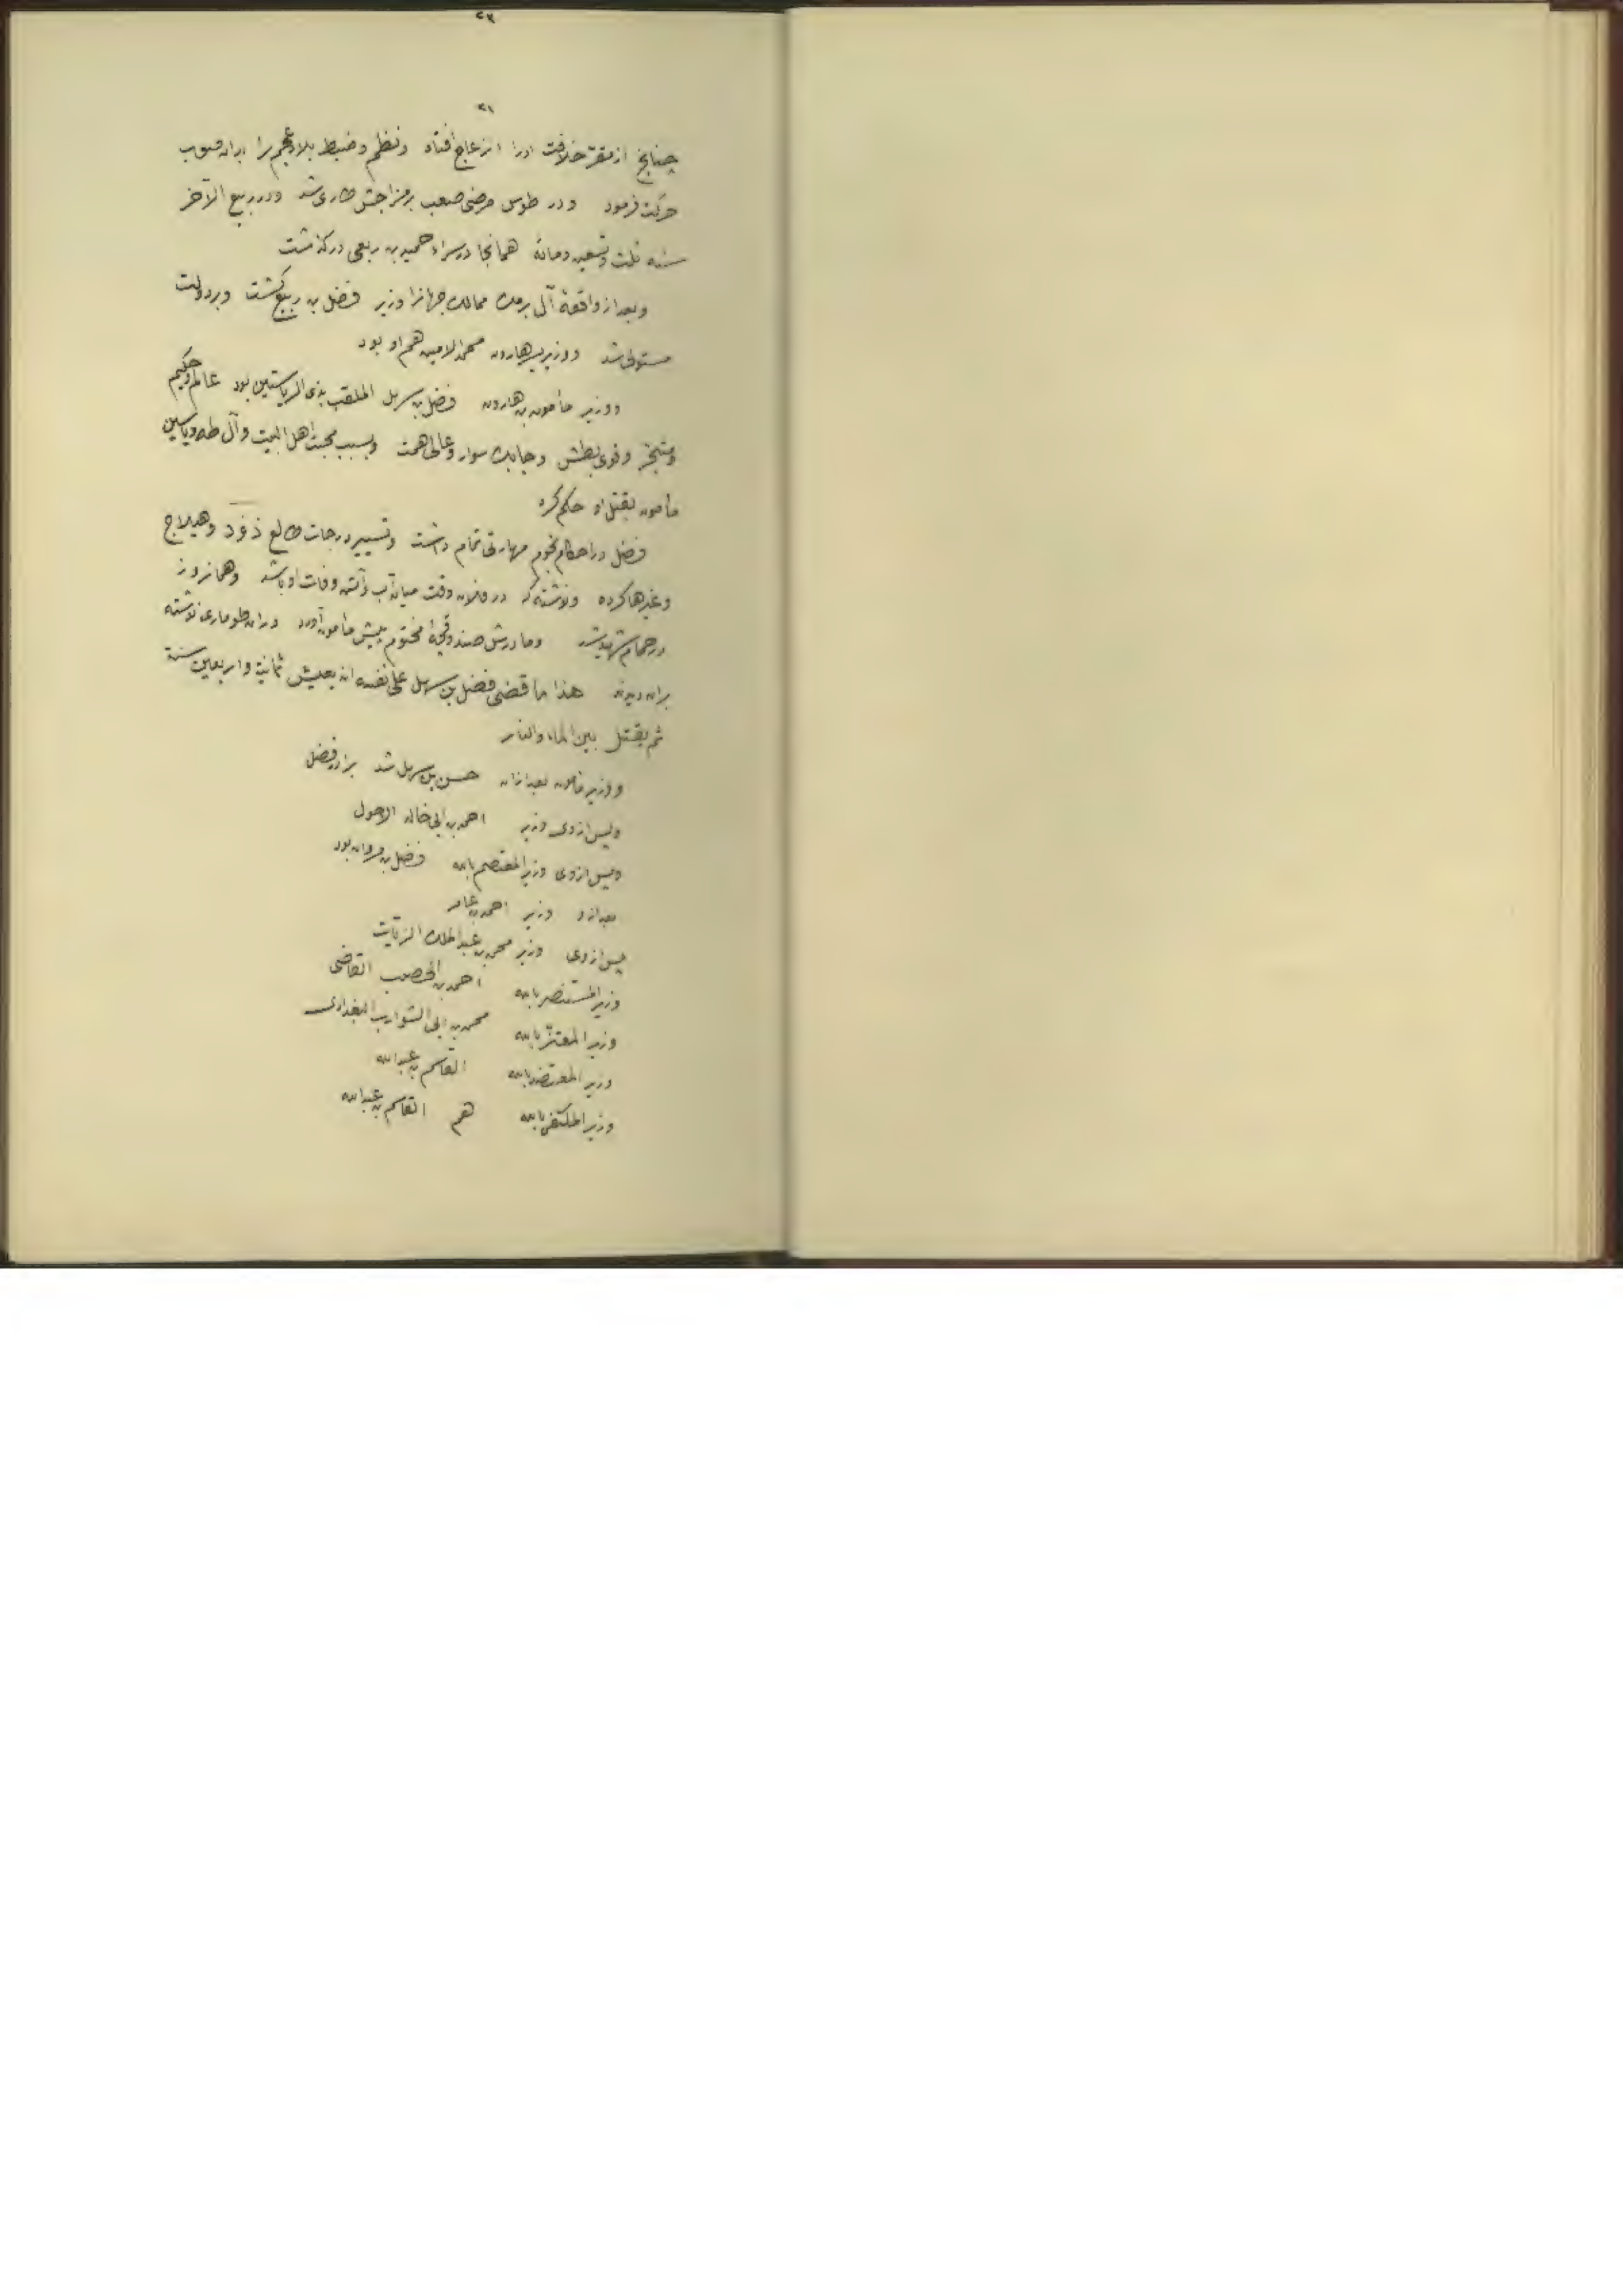 ۲۱
چنانچ از مقرّ خلافت اورا انزعاج افتاد ونظم وضبط بلاد عجم را بدان صوب
حرکت فرمود ودر طوس مرضی صعب بر مزاجش طاری شد ودر ربیع الآخر
سنه ثلث وتسعین ومائة همانجا در سراء حمید بن ربعی درکذشت
وبعد از واقعهٔ آل برمک ممالک جهانرا وزیر فضل بن ربیع کشت وبر دولت
مستولی شد ووزیر پسر هارون محمد الامین هم او بود
ووزیر مأمون بن هارون فضل بن سهل الملقب بذی الریاستین بود عالم وحکیم
ومتبحّر وقوی بطش وچابک سوار وعالی همت وبسبب محبت اهل البیت وآل طه ویاسین
مأمون بقتل او حکم کرد
فضل در احکام نجوم مهارتی تمام داشت وتسییر درجات طالع خود وهیلاج
وغیرها کرده ونوشته که در فلان وقت میان آب وآتش وفات او باشد وهمانروز
در حمام شهید شد ومادرش صندوقچهٔ مختوم پیش مأمون آورد ودران طوماری نوشته
بران دیدند هذا ما قضی فضل بن سهل علی نفسه انه یعیش ثمانیة واربعین سنة
ثم یقتل بین الماء والنار
ووزیر مأمون بعد ازان حسن بن سهل شد برادر فضل
وپس از وی وزیر احمد بن ابی خالد الاحول
وپس از وی وزیر المعتصم بالله فضل بن مروان بود
بعد ازو وزیر احمد بن عامر
پس از وی وزیر محمد بن عبد الملک الزیّات
وزیر المستنصر بالله احمد بن الخصیب القاضی
وزیر المعتزّ بالله محمد بن ابی الشوارب البغدادی
وزیر المعتضد بالله القاسم بن عبد الله
وزیر المکتفی بالله هم القاسم بن عبد الله